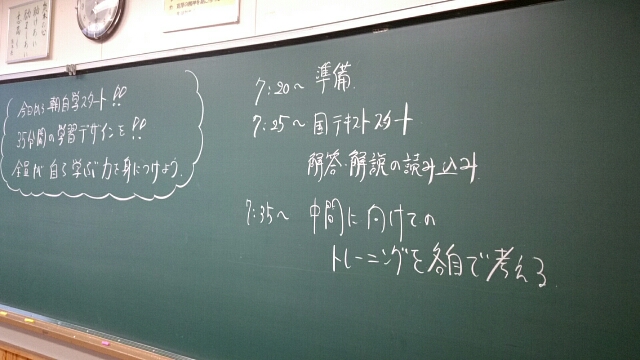 今日から朝自学スタート!!
35分間の学習デザインを!!
全員が自ら学ぶ力を身につけよう.
7:20〜 準備
7:25〜 国テキストスタート
解答・解説の読み込み
7:35〜 中間に向けての
トレーニングを各自で考える.